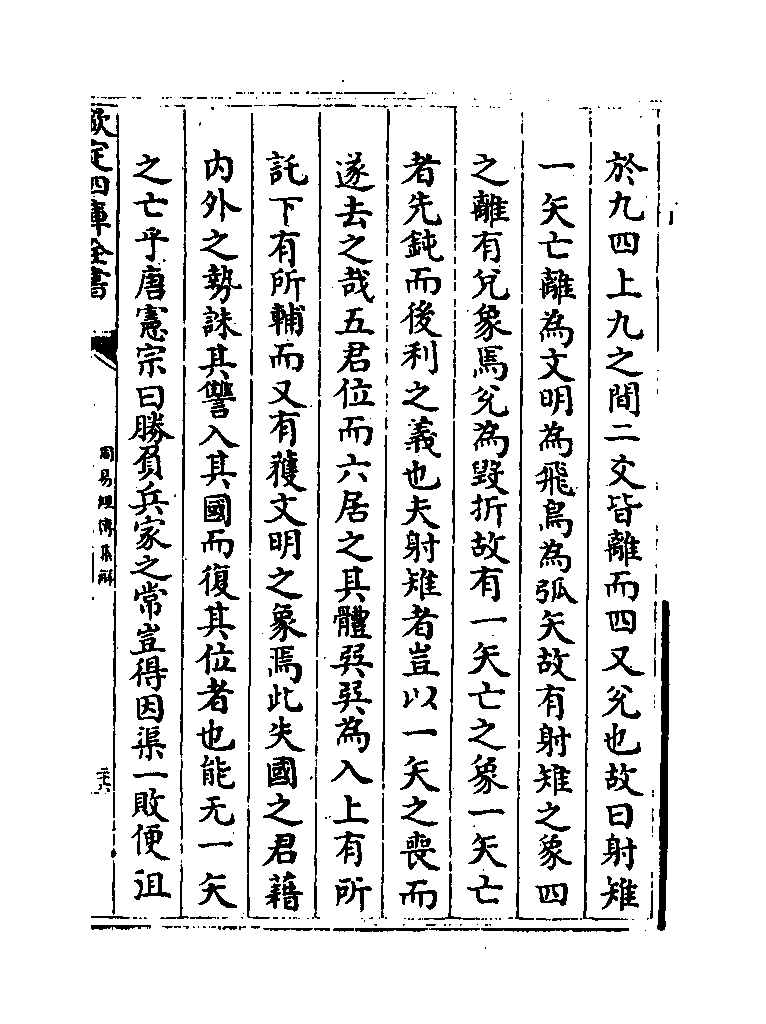 於九四上九之間二爻皆離而四又兊也故曰射雉
一矢亡離為文明為飛鳥為弧矢故有射雉之象四
之離有兊象焉兊為毀折故有一矢亡之象一矢亡
者先鈍而後利之義也夫射雉者豈以一矢之喪而
遂去之哉五君位而六居之其體巽巽為入上有所
託下有所輔而又有穫文明之象焉此失國之君藉
内外之勢誅其讐入其國而復其位者也能无一矢
之亡乎唐憲宗曰勝負兵家之常豈得因渠一敗便沮
欽定四庫全書
周易經傳集解
三六